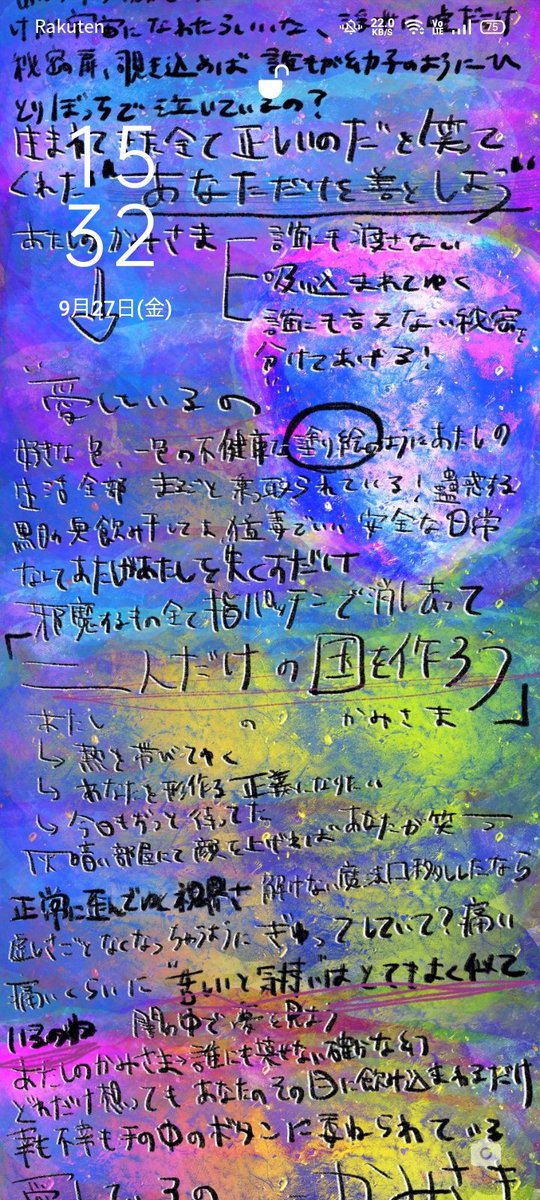 Rakuten
22.0 KB/S
Vo LTE
75
秘密の扉、覗き込めば 誰もが幼子のようにひ
とりぼっちで泣いているの?
生まれて 全て正しいのだと笑って
くれた "あなただけを善としよう"
15
32
9月27日(金)
あたしのかみさま
誰にも渡さない
吸い込まれてゆく
誰にも言えない秘密を
分けてあげる!
愛しているの
好きな色、一色の不健康な塗り絵のようにあたしの
生活全部 まるごと乗っ取られている!蠱惑する
安全な日常
なんてあたしがあたしを失くすだけ
邪魔するもの全て指パッチンで消しあって
「二人だけの国を作ろう」
あたしのかみさま
熱を帯びてゆく
あなたを形作る正義になりたい
今日もずっと待ってた
暗い部屋にて顔を上げれば あなたが笑
正常に歪んでゆく視界さ 解けない魔法口移ししたなら
虚しさごとなくなっちゃうように ぎゅってしていて?痛い
痛いくらいに "苦しいと気持いはとてもよく似て
いるのね 闇の中で夢を見よう
あたしのかみさまっ誰にも壊せない確かな幻
どれだけ想っても あなたのその目に飲み込まれるだけ
幸も不幸も手の中のボタンに委ねられている
愛しているの かみさま